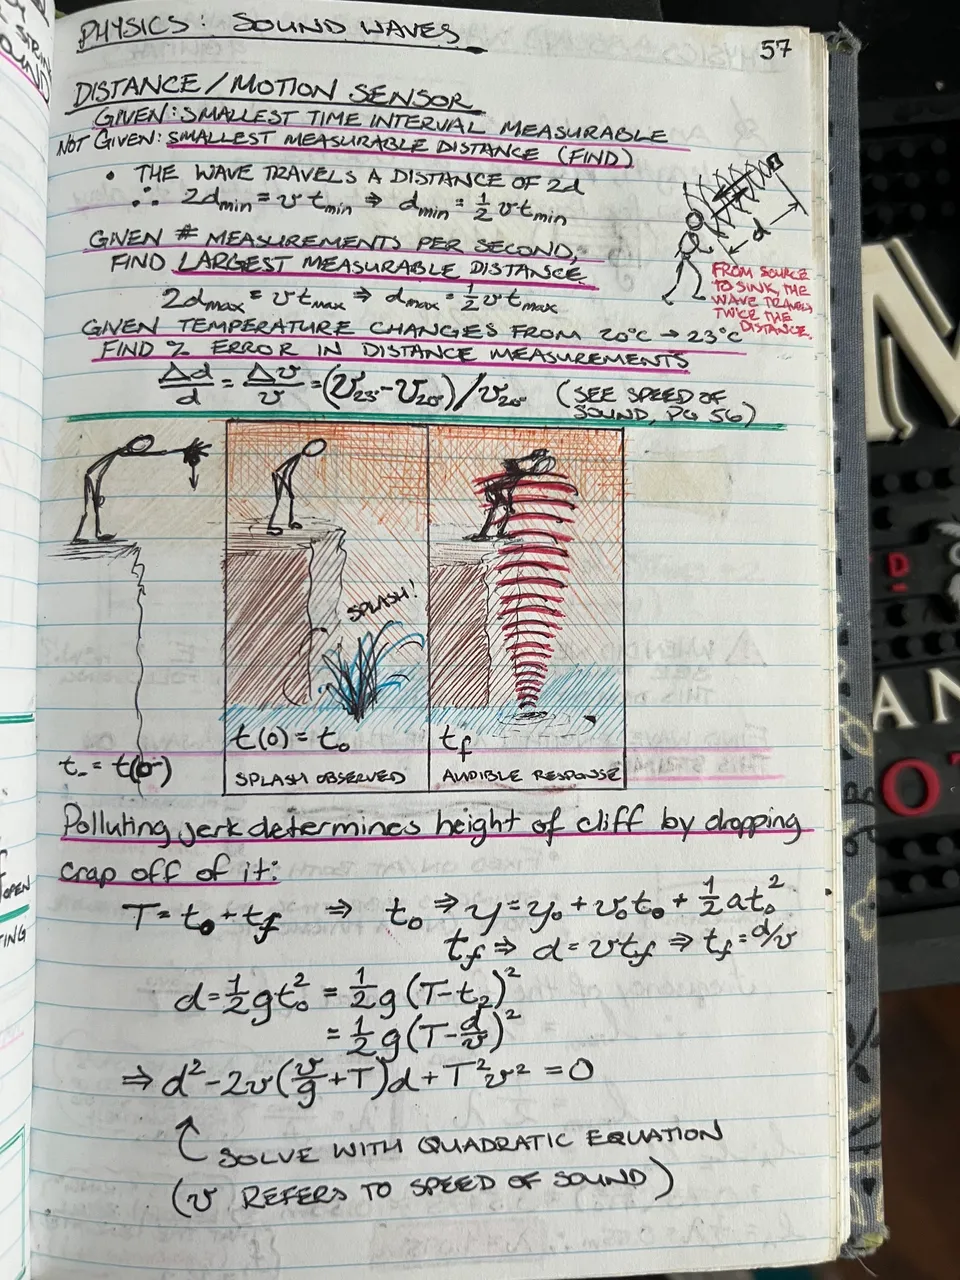 PHYSICS: SOUND WAVES
57
DISTANCE/MOTION SENSOR
GIVEN: SMALLEST TIME INTERVAL MEASURABLE
NOT GIVEN: SMALLEST MEASURABLE DISTANCE (FIND)
• THE WAVE TRAVELS A DISTANCE OF 2d
∴ 2dmin = v tmin ⇒ dmin = 1/2 v tmin
d
FROM SOURCE
TO SINK, THE
WAVE TRAVELS
TWICE THE
DISTANCE.
GIVEN # MEASUREMENTS PER SECOND,
FIND LARGEST MEASURABLE DISTANCE.
2dmax = v tmax ⇒ dmax = 1/2 v tmax
GIVEN TEMPERATURE CHANGES FROM 20°C → 23°C
FIND % ERROR IN DISTANCE MEASUREMENTS
Δd/d = Δv/v = (v23° - v20°)/v20° (SEE SPEED OF
SOUND, PG 56)
SPLASH!
t- = t(0-)
t(0) = t₀
SPLASH OBSERVED
tf
AUDIBLE RESPONSE
Polluting jerk determines height of cliff by dropping
crap off of it:
T = t₀ + tf ⇒ t₀ ⇒ y = y₀ + v₀t₀ + 1/2 at₀²
tf ⇒ d = vtf ⇒ tf = d/v
d = 1/2 gt₀² = 1/2 g(T-t₂)²
= 1/2 g(T-d/v)²
⇒ d² - 2v(v/g + T)d + T²v² = 0
SOLVE WITH QUADRATIC EQUATION
(v REFERS TO SPEED OF SOUND)
OPEN
D
AN